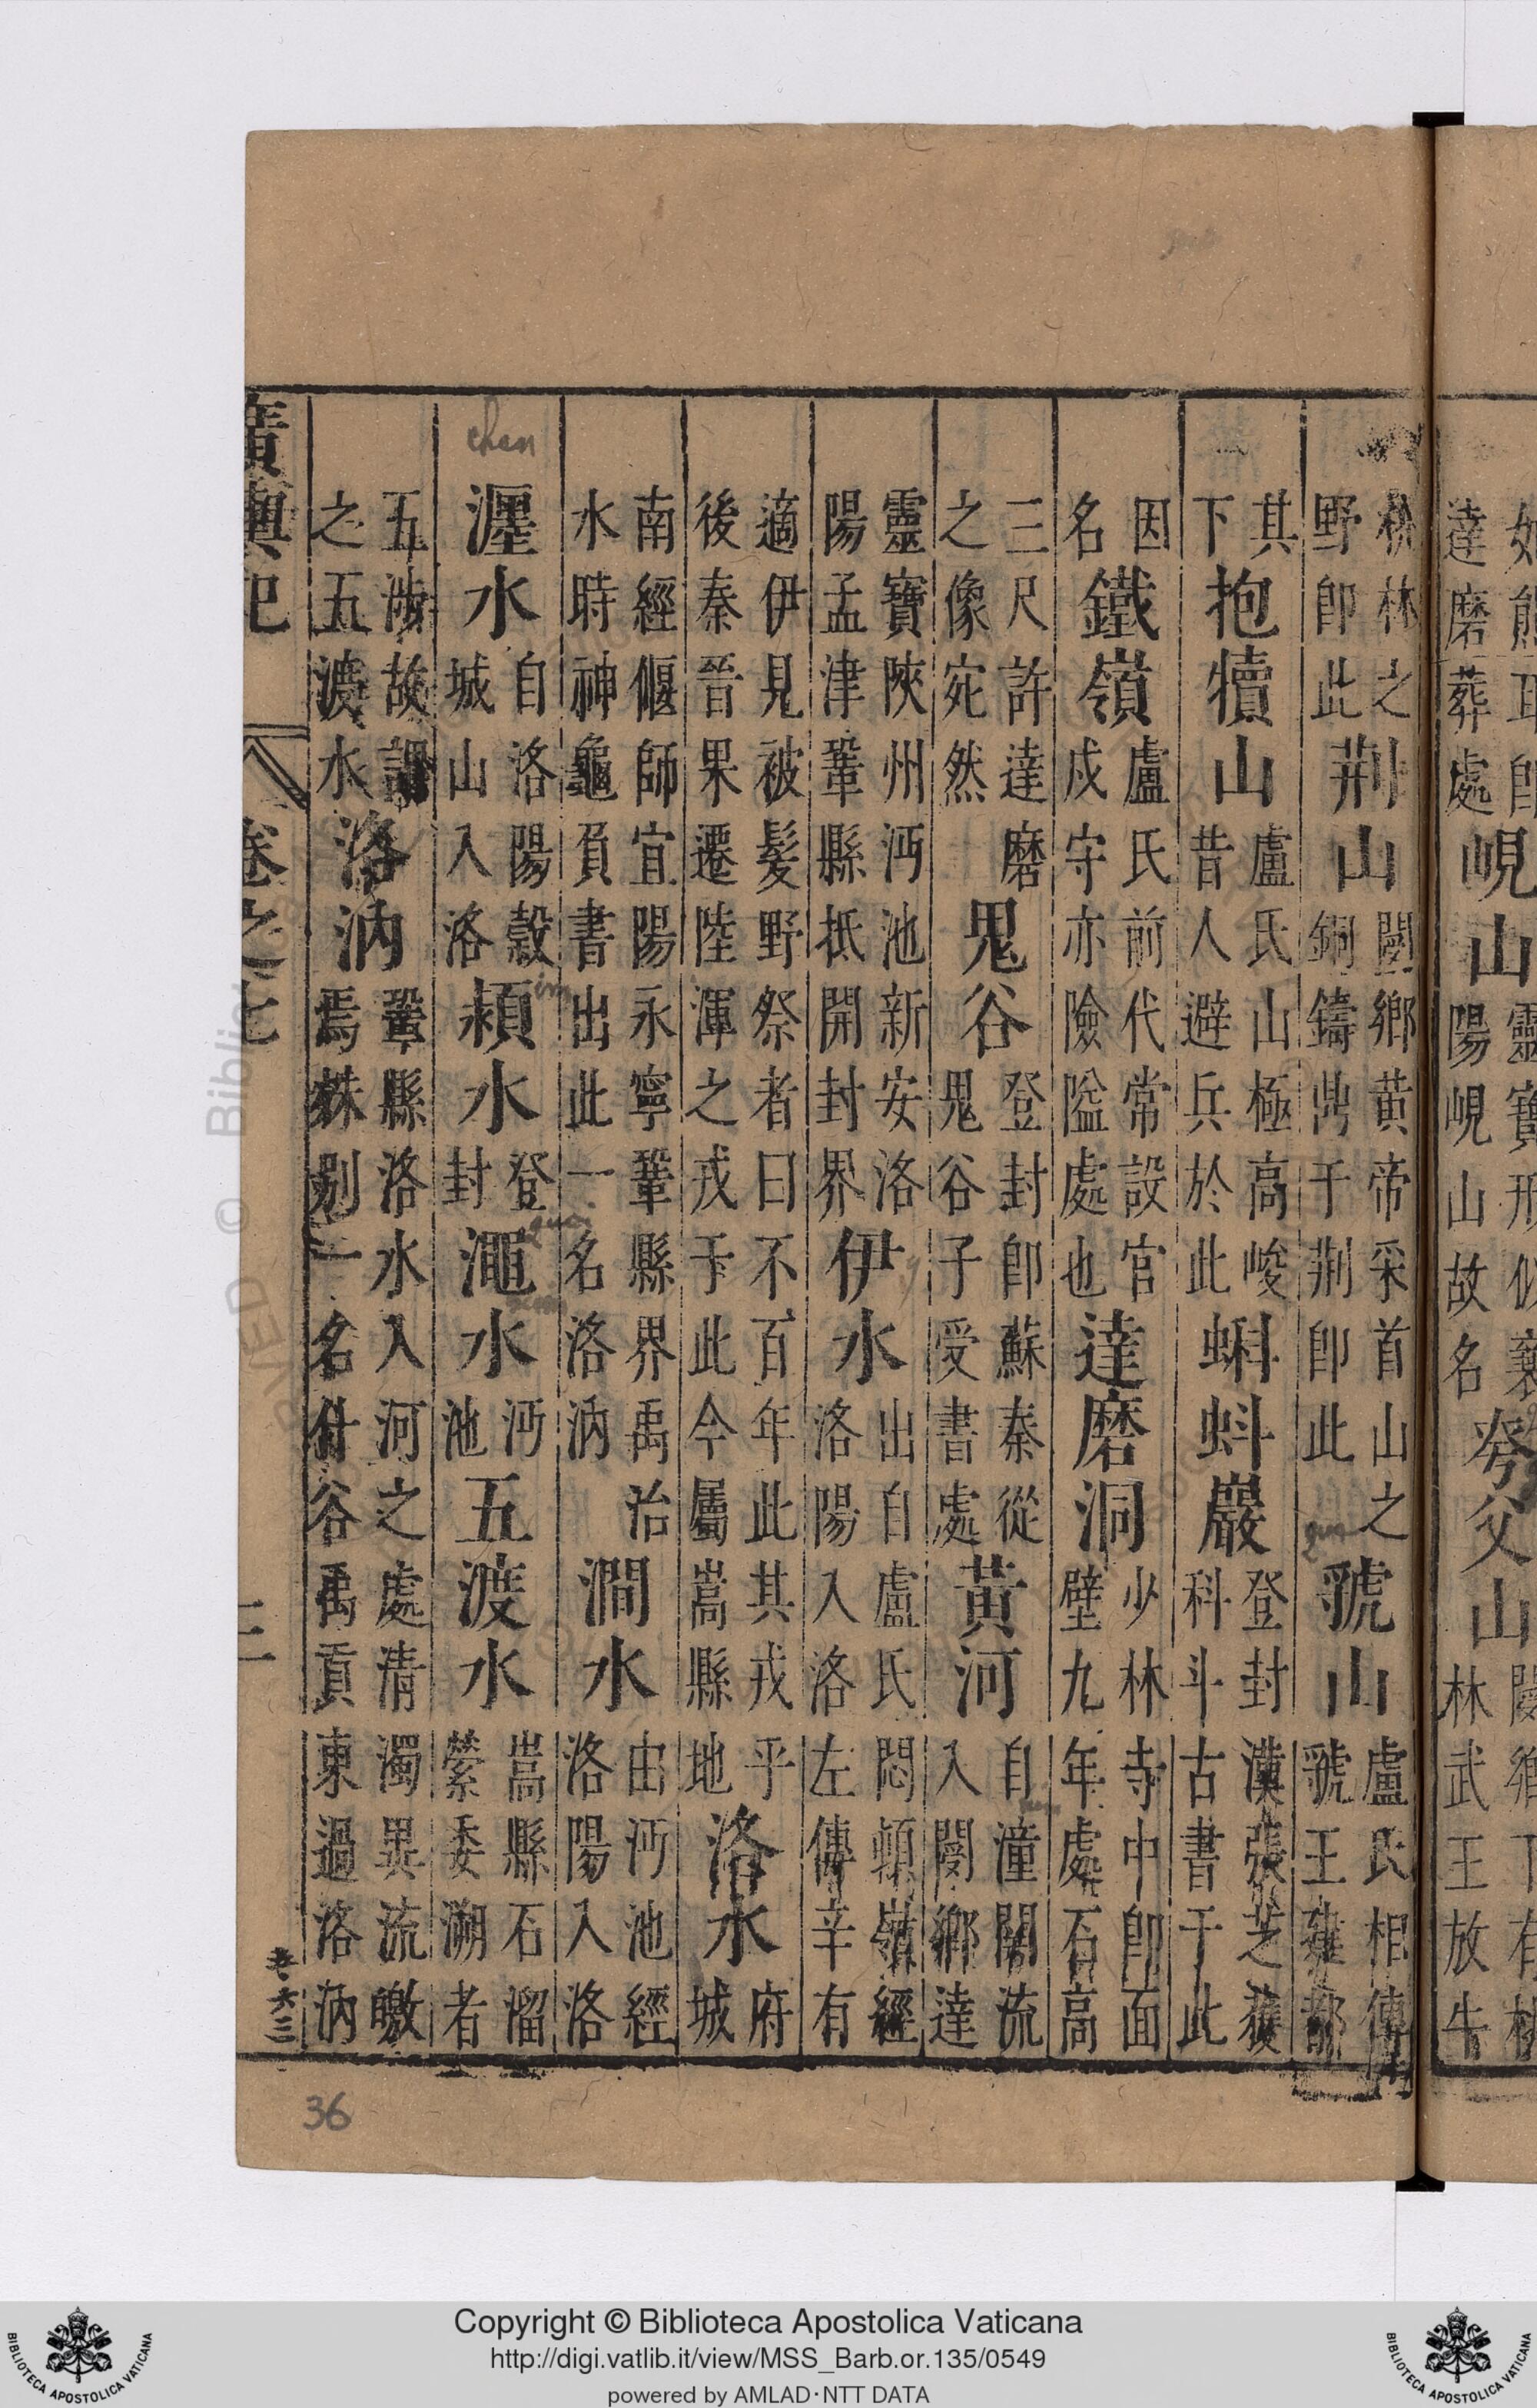 桃林之荆山閿鄉黄帝采首山之虢山盧氏相傳
野卽此銅鑄鼎于荆卽此虢王
其抱犢山盧氏山極高峻蝌蚪巖登封漢張芝𫉬
下昔人避兵於此科斗古書于此
因鐵嶺盧氏前代常設官達磨洞少林寺中卽面
名戍守亦險隘處也壁九年處石高
三尺許達磨鬼谷登封卽蘇秦從黃河自潼關流
之像宛然鬼谷子受書處入閿鄉達
靈寶陝州沔池新安洛伊水出自盧氏悶頓嶺經
陽孟津鞏縣抵開封界洛陽入洛左傳辛有
適伊見被髮野祭者曰不百年此其戎乎洛水府
後秦晉果遷陸渾之戎于此今屬嵩縣地城
南經偃師宜陽永寧鞏縣界禹治澗水由沔池經
水時神龜負書出此一名洛汭洛陽入洛
瀍水自洛陽穀潁水登澠水沔五渡水嵩縣石溜
城山入洛封池縈委溯者
五渡故謂洛汭鞏縣洛水入河之處清濁異流皦
之五渡水焉殊别一名什谷禹貢東過洛汭
廣輿記
卷之七
三
chan
in
老六三
36
達磨葬處峴山
陽峴山故名父山林武王放牛
Copyright © Biblioteca Apostolica Vaticana
http://digi.vatlib.it/view/MSS_Barb.or.135/0549
powered by AMLAD·NTT DATA
BIBLIOTECA APOSTOLICA VATICANA
BIBLIOTECA APOSTOLICA VATICANA